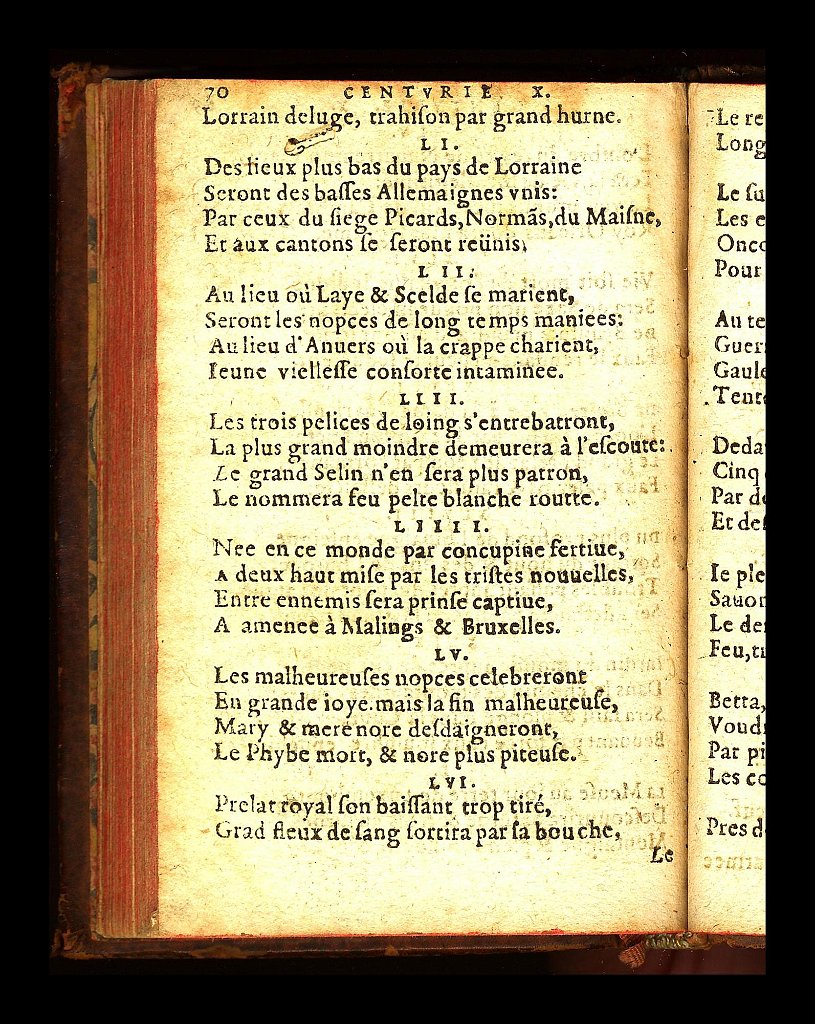 70 CENTVRIE X.
Lorrain deluge, trahiſon par grand hurne.
LI.
Des lieux plus bas du pays de Lorraine
Seront des baſſes Allemaignes vnis:
Par ceux du ſiege Picards, Normãs, du Maiſne,
Et aux cantons ſe ſeront reünis.
LII.
Au lieu où Laye & Scelde ſe marient,
Seront les nopces de long temps maniees:
Au lieu d'Anuers où la crappe charient,
Ieune vielleſſe conſorte intaminee.
LIII.
Les trois pelices de loing s'entrebatront,
La plus grand moindre demeurera à l'eſcoute:
Le grand Selin n'en ſera plus patron,
Le nommera feu pelte blanche routte.
LIIII.
Nee en ce monde par concupine fertiue,
A deux haut miſe par les triſtes nouuelles,
Entre ennemis ſera prinſe captiue,
A amenee à Malings & Bruxelles.
LV.
Les malheureuſes nopces celebreront
En grande ioye. mais la fin malheureuſe,
Mary & mere nore deſdaigneront,
Le Phybe mort, & nore plus piteuſe.
LVI.
Prelat royal ſon baiſſant trop tiré,
Grad fleux de ſang ſortira par ſa bouche,
Le
Le re
Long
Le ſu
Les e
Onco
Pour
Au te
Guer
Gaule
Tent
Deda
Cinq
Par d
Et de
Ie ple
Sauor
Le de
Feu, t
Betta,
Voud
Par pi
Les co
Pres d